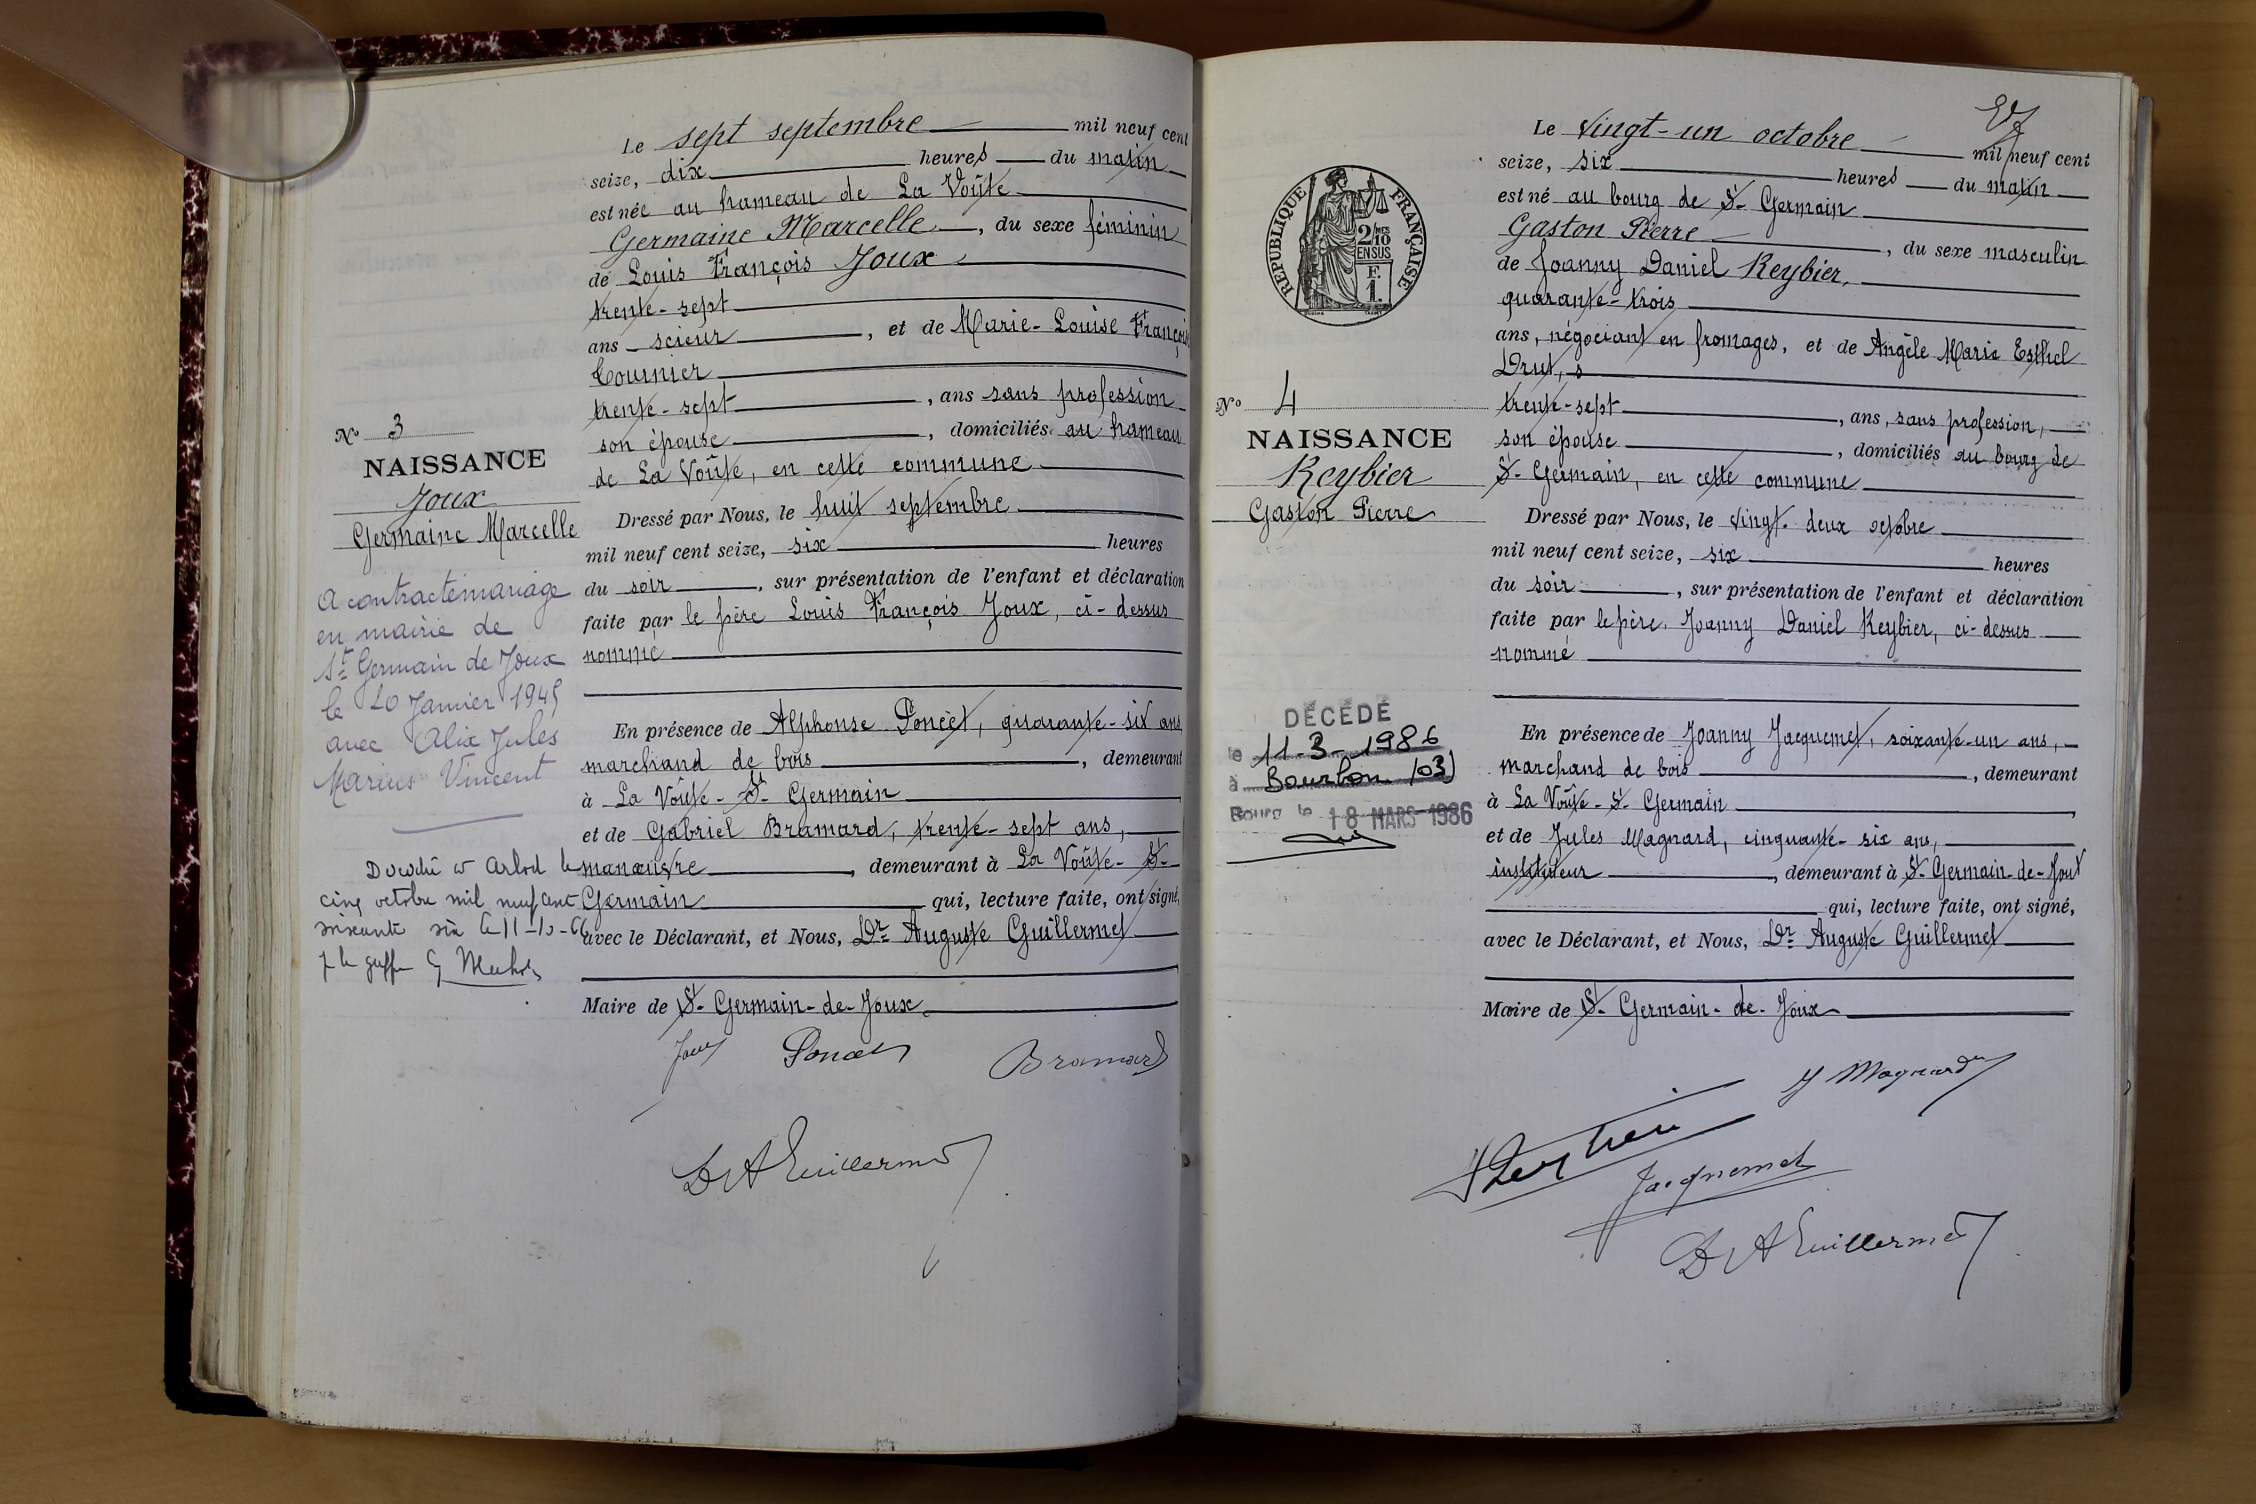 Le sept septembre mil neuf cent
seize, dix heures du matin
est née au hameau de La Voûte
Germaine Marcelle, du sexe féminin
de Louis François Joux
trente-sept
ans scieur, et de Marie-Louise François
Tournier
trente-sept, ans sans profession
son épouse, domiciliés au hameau
de La Voûte, en cette commune
Dressé par Nous, le huit septembre
mil neuf cent seize, six heures
du soir, sur présentation de l'enfant et déclaration
faite par le père Louis François Joux, ci-dessus
nommé
En présence de Alphonse Poncet, quarante-six ans
marchand de bois, demeurant
à La Voûte-St Germain
et de Gabriel Bramard, trente-sept ans,
manœuvre, demeurant à La Voûte-St
Germain qui, lecture faite, ont signé,
avec le Déclarant, et Nous, Dr Auguste Guillermet
Maire de St-Germain-de-Joux
Joux Poncet Bramard
Dr A Guillermet
No 3
NAISSANCE
Joux
Germaine Marcelle
A contracté mariage
en mairie de
St Germain de Joux
le 20 Janvier 1945
avec Alix Jules
Marius Vincent
Décédée à Arlod le
cinq octobre mil neuf cent
soixante six le 11-10-66
Le vingt-un octobre mil neuf cent
seize, six heures du matin
est né au bourg de St Germain
Gaston Pierre, du sexe masculin
de Joanny Daniel Reybier,
quarante-trois
ans, négociant en fromages, et de Angèle Marie Esthel
Drut,
trente-sept, ans, sans profession,
son épouse, domiciliés au bourg de
St-Germain, en cette commune
Dressé par Nous, le vingt-deux octobre
mil neuf cent seize, six heures
du soir, sur présentation de l'enfant et déclaration
faite par le père, Joanny Daniel Reybier, ci-dessus
nommé
En présence de Joanny Jacquemet, soixante-un ans,
marchand de bois, demeurant
à La Voûte-St Germain
et de Jules Magnard, cinquante-six ans,
instituteur, demeurant à St-Germain-de-Joux
qui, lecture faite, ont signé,
avec le Déclarant, et Nous, Dr Auguste Guillermet
Maire de St-Germain-de-Joux
J Magnard
Jacquemet
Dr A Guillermet
RÉPUBLIQUE FRANÇAISE
2/10
EN SUS
F.
1.
No 4
NAISSANCE
Reybier
Gaston Pierre
DÉCÉDÉ
le 11-3-1986
à Bourbon (03)
Bourg le 18 MARS 1986